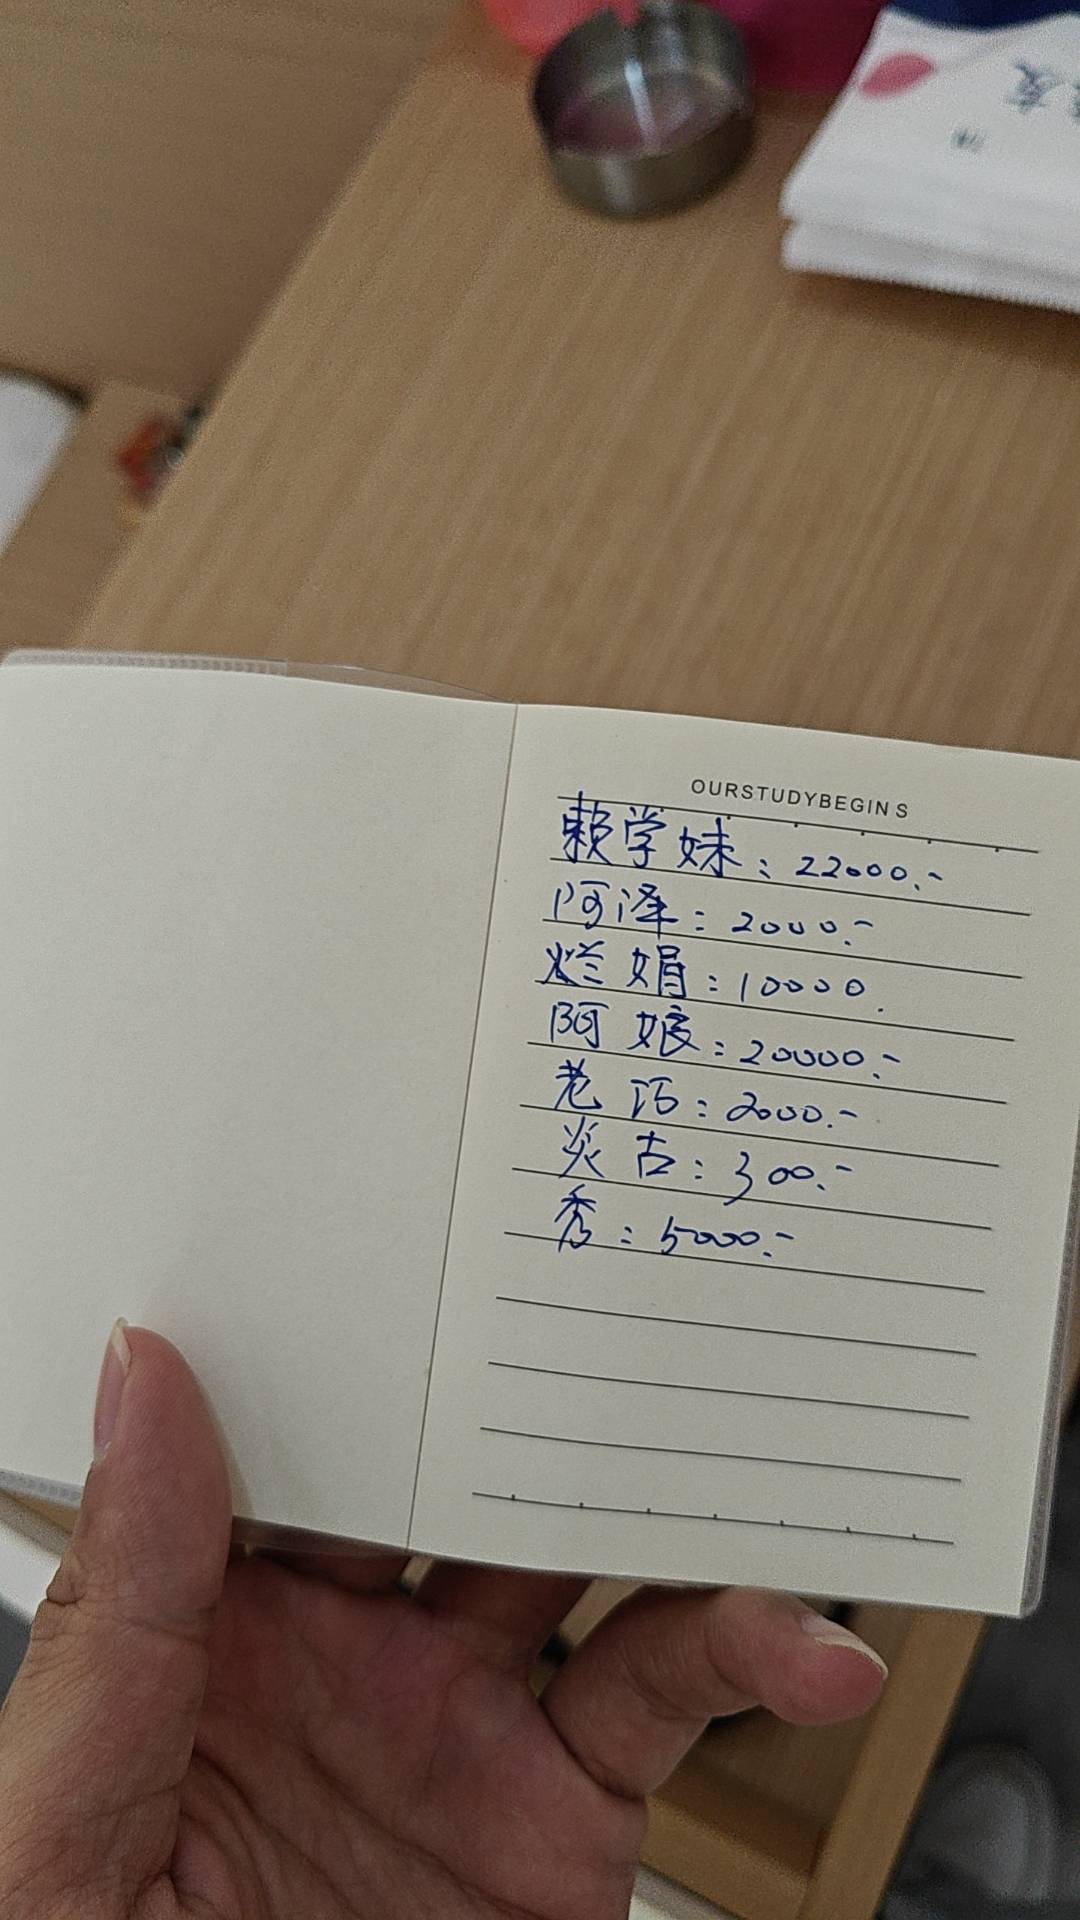 OURSTUDYBEGINS
赖学妹：22000.-
阿泽：2000.-
烂娟：10000.
阿娘：20000.-
老巧：2000.-
炎古：300.-
秀：5000.-